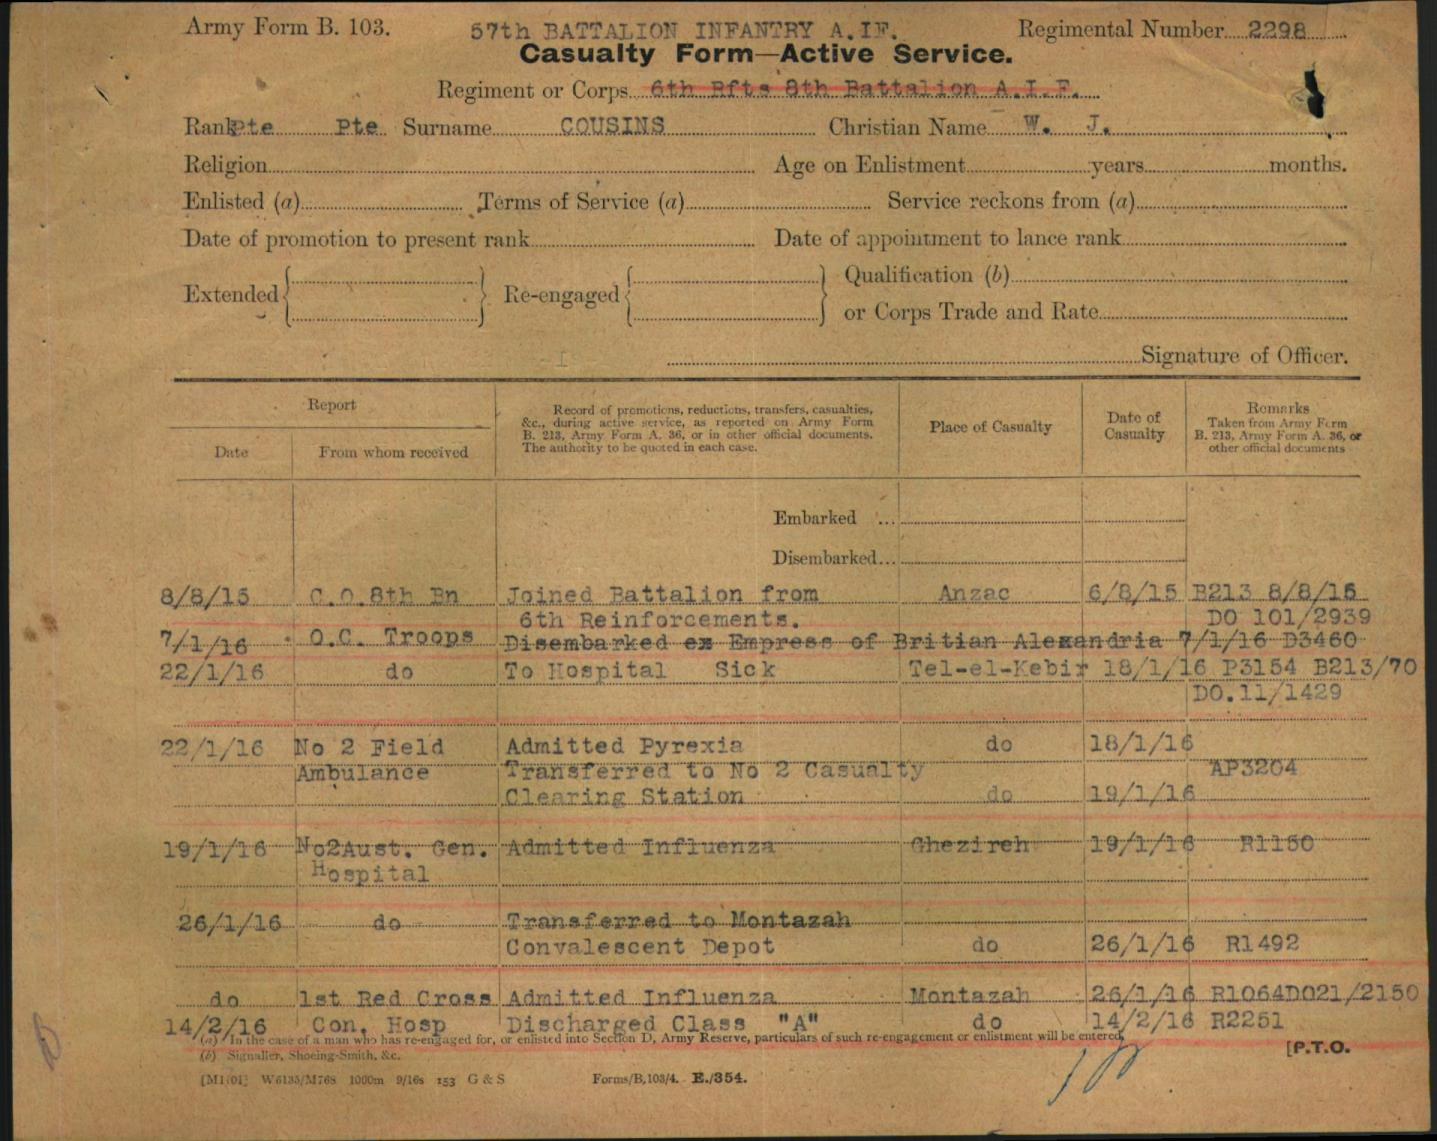 Army Form B. 103. 57th BATTALION INFANTRY A.IF. Regimental Number 2298
Casualty Form—Active Service.
Regiment or Corps 6th Rfts 8th Battalion A.I.F.
Rank Pte Pte Surname COUSINS Christian Name W. J.
Religion Age on Enlistment years months.
Enlisted (a) Terms of Service (a) Service reckons from (a)
Date of promotion to present rank Date of appointment to lance rank
Extended Re-engaged Qualification (b)
or Corps Trade and Rate
Signature of Officer.
Report
Date From whom received
Record of promotions, reductions, transfers, casualties,
&c., during active service, as reported on Army Form
B. 213, Army Form A. 36, or in other official documents.
The authority to be quoted in each case.
Place of Casualty
Date of
Casualty
Remarks
Taken from Army Form
B. 213, Army Form A. 36, or
other official documents
Embarked ...
Disembarked...
8/8/15 C.O.8th Bn Joined Battalion from Anzac 6/8/15 B213 8/8/15
6th Reinforcements. DO 101/2939
7/1/16 O.C. Troops Disembarked ex Empress of Britian Alexandria 7/1/16 D3460
22/1/16 do To Hospital Sick Tel-el-Kebir 18/1/16 P3154 B213/70
DO.11/1429
22/1/16 No 2 Field Admitted Pyrexia do 18/1/16
Ambulance Transferred to No 2 Casualty AP3204
Clearing Station do 19/1/16
19/1/16 No2Aust. Gen. Admitted Influenza Ghezireh 19/1/16 R1150
Hospital
26/1/16 do Transferred to Montazah
Convalescent Depot do 26/1/16 R1492
do 1st Red Cross Admitted Influenza Montazah 26/1/16 R1064DO21/2150
14/2/16 Con. Hosp Discharged Class "A" do 14/2/16 R2251
(a) In the case of a man who has re-engaged for, or enlisted into Section D, Army Reserve, particulars of such re-engagement or enlistment will be entered.
(b) Signaller, Shoeing-Smith, &c. [P.T.O.
W6135/M768 1000m 9/16s 153 G & S Forms/B.103/4. E./354.